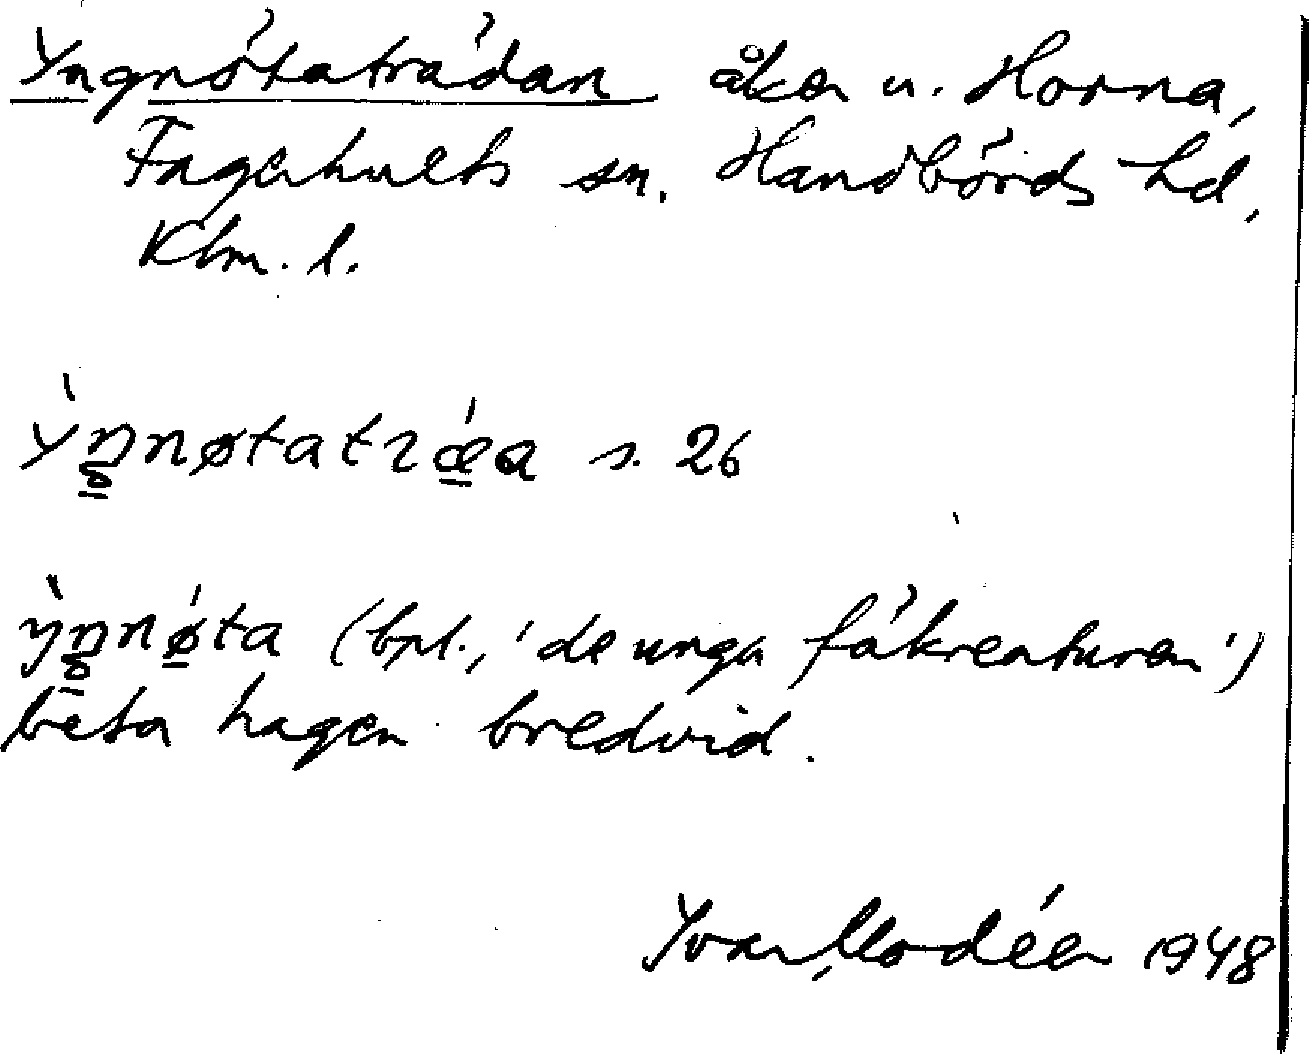 Yngnötaträdan åker u. Horna,
Fagerhults sn. Handbörds hd,
Klm. l.
ỳŋnøtatræa s. 26
ỳŋnǿta (bpl., 'de unga fäkreaturen')
beta hagen bredvid.
Yvar Modéer 1948